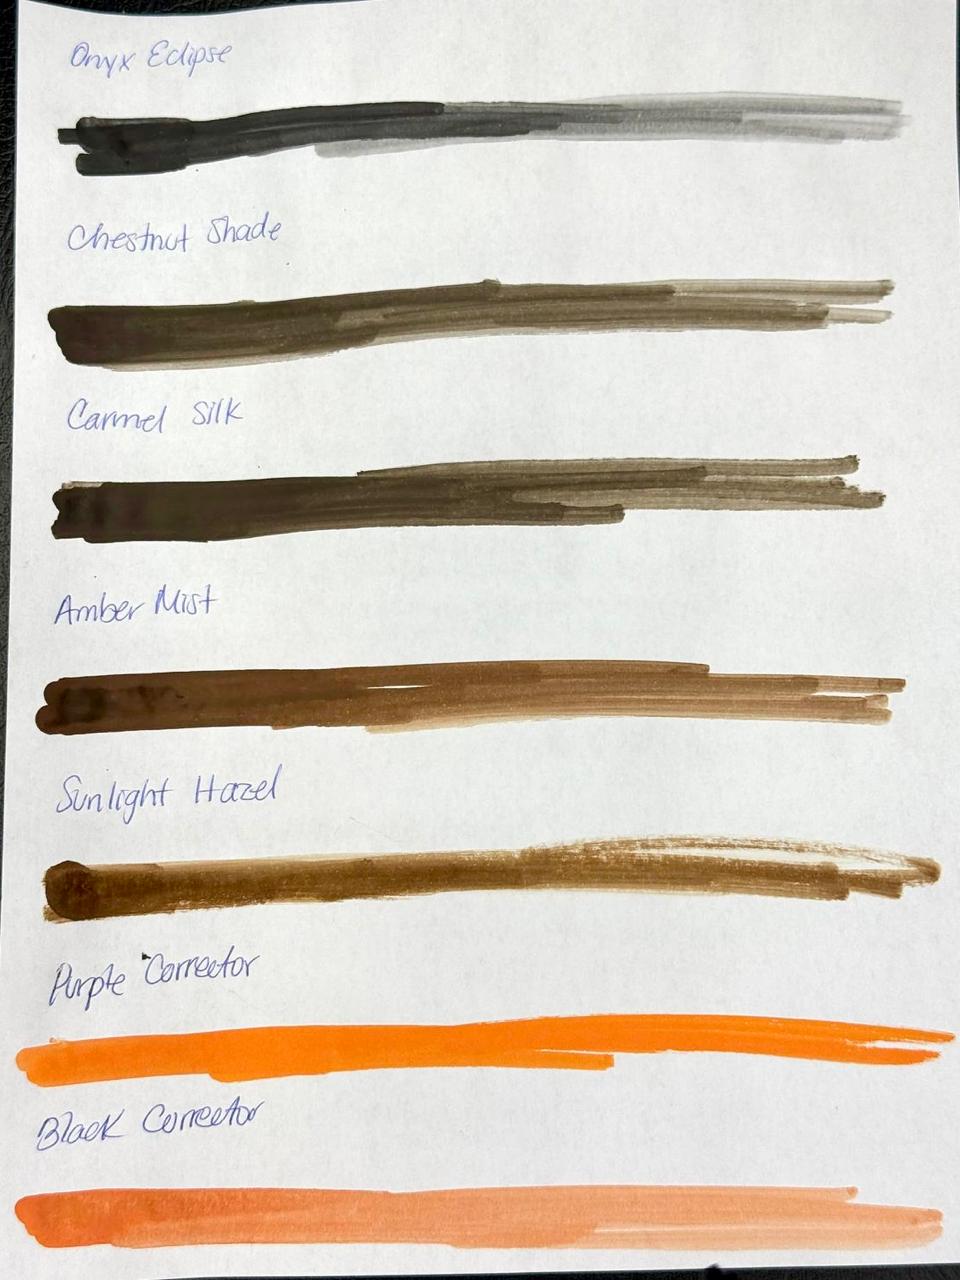 Onyx Eclipse
Chestnut Shade
Carmel Silk
Amber Mist
Sunlight Hazel
Purple Corrector
Black Corrector